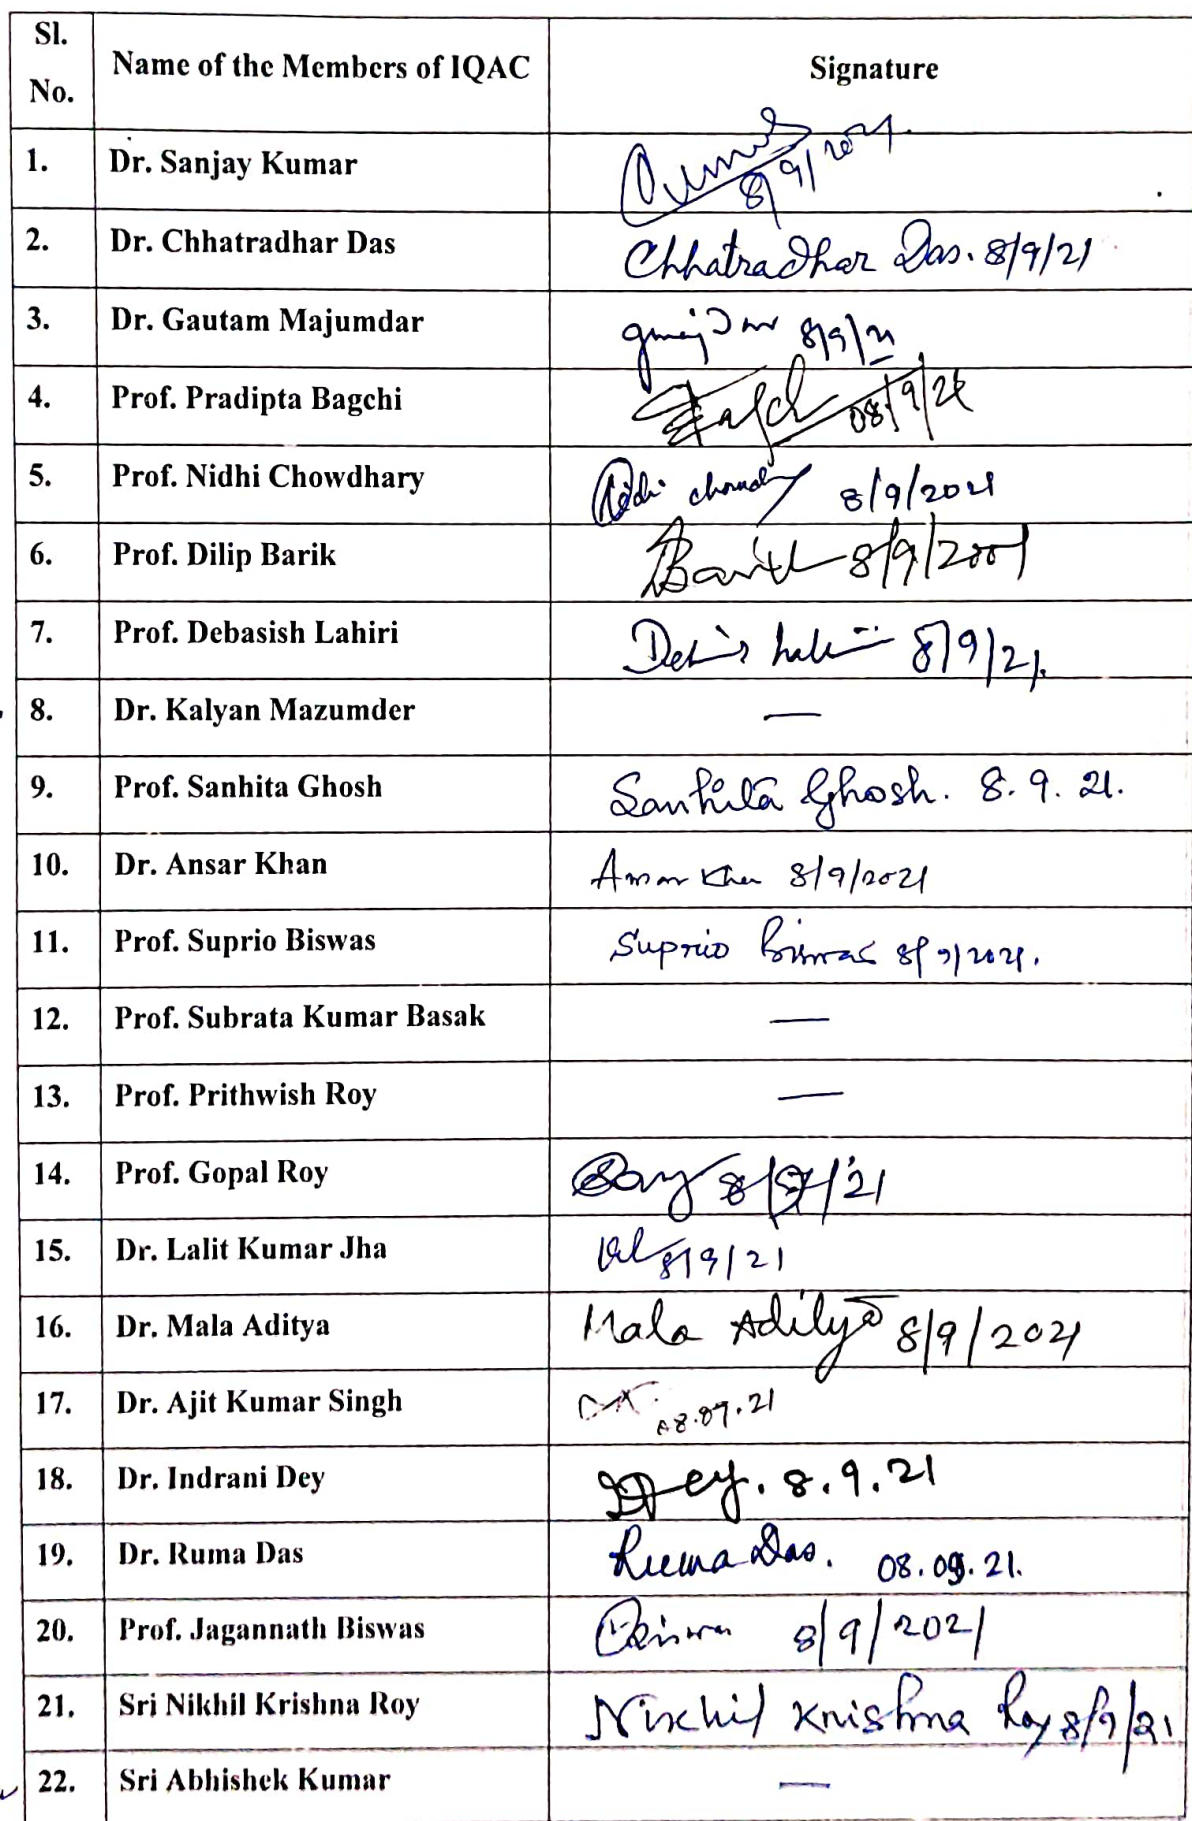 Sl. No. Name of the Members of IQAC Signature
1. Dr. Sanjay Kumar 8/9/2021.
2. Dr. Chhatradhar Das Chhatradhar Das. 8/9/21
3. Dr. Gautam Majumdar 8/9/21
4. Prof. Pradipta Bagchi 08/9/21
5. Prof. Nidhi Chowdhary 8/9/2021
6. Prof. Dilip Barik Barik 8/9/2001
7. Prof. Debasish Lahiri 8/9/21.
8. Dr. Kalyan Mazumder —
9. Prof. Sanhita Ghosh Sanhita Ghosh. 8.9.21.
10. Dr. Ansar Khan Ansar Khan 8/9/2021
11. Prof. Suprio Biswas Suprio Biswas 8/9/2021.
12. Prof. Subrata Kumar Basak —
13. Prof. Prithwish Roy —
14. Prof. Gopal Roy 8/9/'21
15. Dr. Lalit Kumar Jha 8/9/21
16. Dr. Mala Aditya Mala Aditya 8/9/2021
17. Dr. Ajit Kumar Singh 08.09.21
18. Dr. Indrani Dey Dey. 8.9.21
19. Dr. Ruma Das Ruma Das. 08.09.21.
20. Prof. Jagannath Biswas 8/9/2021
21. Sri Nikhil Krishna Roy Nikhil Krishna Roy 8/9/21
22. Sri Abhishek Kumar —